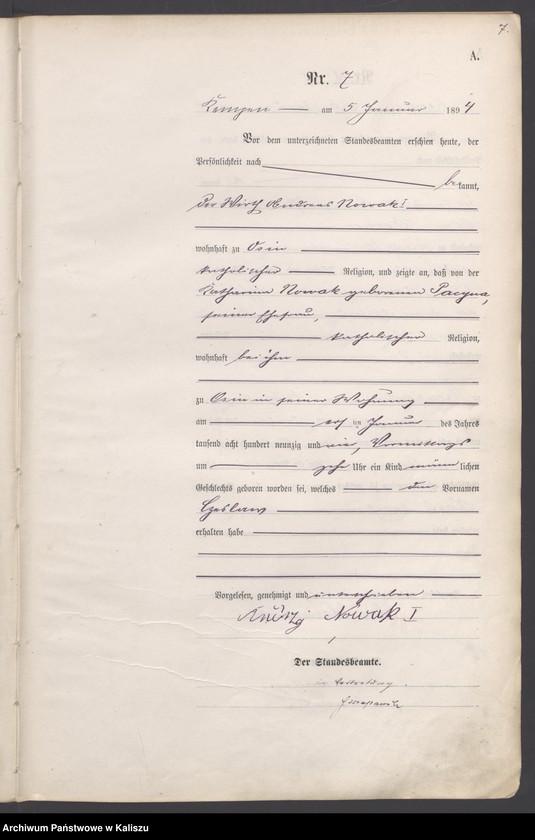 7.
A.
Nr. 7
Kempen am 5 Januar 1894
Vor dem unterzeichneten Standesbeamten erschien heute, der
Persönlichkeit nach
bekannt,
der Wirth Andreas Nowak I
wohnhaft zu Osin
katholischer Religion, und zeigte an, daß von der
Katharina Nowak geborenen Pacyna,
seiner Ehefrau,
katholischer Religion,
wohnhaft bei ihm
zu Osin in seiner Wohnung
am ten Januar des Jahres
tausend acht hundert neunzig und vier, Vormittags
um zehn Uhr ein Kind männlichen
Geschlechts geboren worden sei, welches den Vornamen
Czeslaw
erhalten habe
Vorgelesen, genehmigt und unterschrieben
Nowak I
Der Standesbeamte.
in Vertretung.
Archiwum Państwowe w Kaliszu